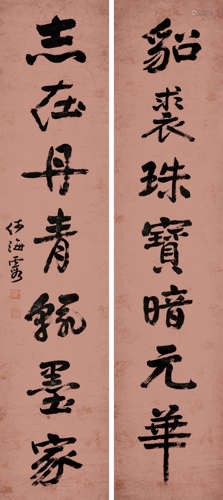 貂裘珠寶暗元華
志在丹青翰墨家
何海霞